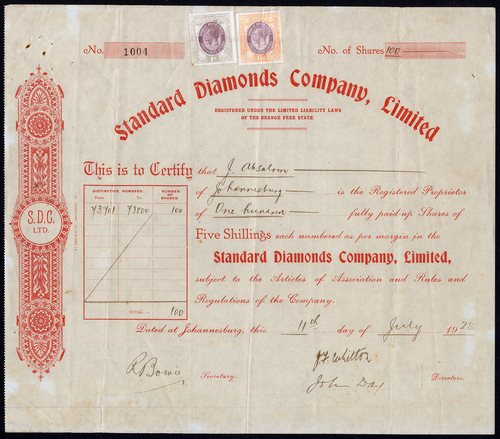 No. 1004
No. of Shares 100
Standard Diamonds Company, Limited
REGISTERED UNDER THE LIMITED LIABILITY LAWS
OF THE ORANGE FREE STATE.
This is to Certify that J. Absalom
of Johannesburg is the Registered Proprietor
of One hundred fully paid-up Shares of
Five Shillings each numbered as per margin in the
Standard Diamonds Company, Limited,
subject to the Articles of Association and Rules and
Regulations of the Company.
DISTINCTIVE NUMBERS.
NUMBER OF SHARES.
From To
73701 73800 100
TOTAL 100
S.D.C.
LTD.
Dated at Johannesburg, this 11th day of July 19
R Bowie
Secretary.
J F Whitton
John Day
Directors.